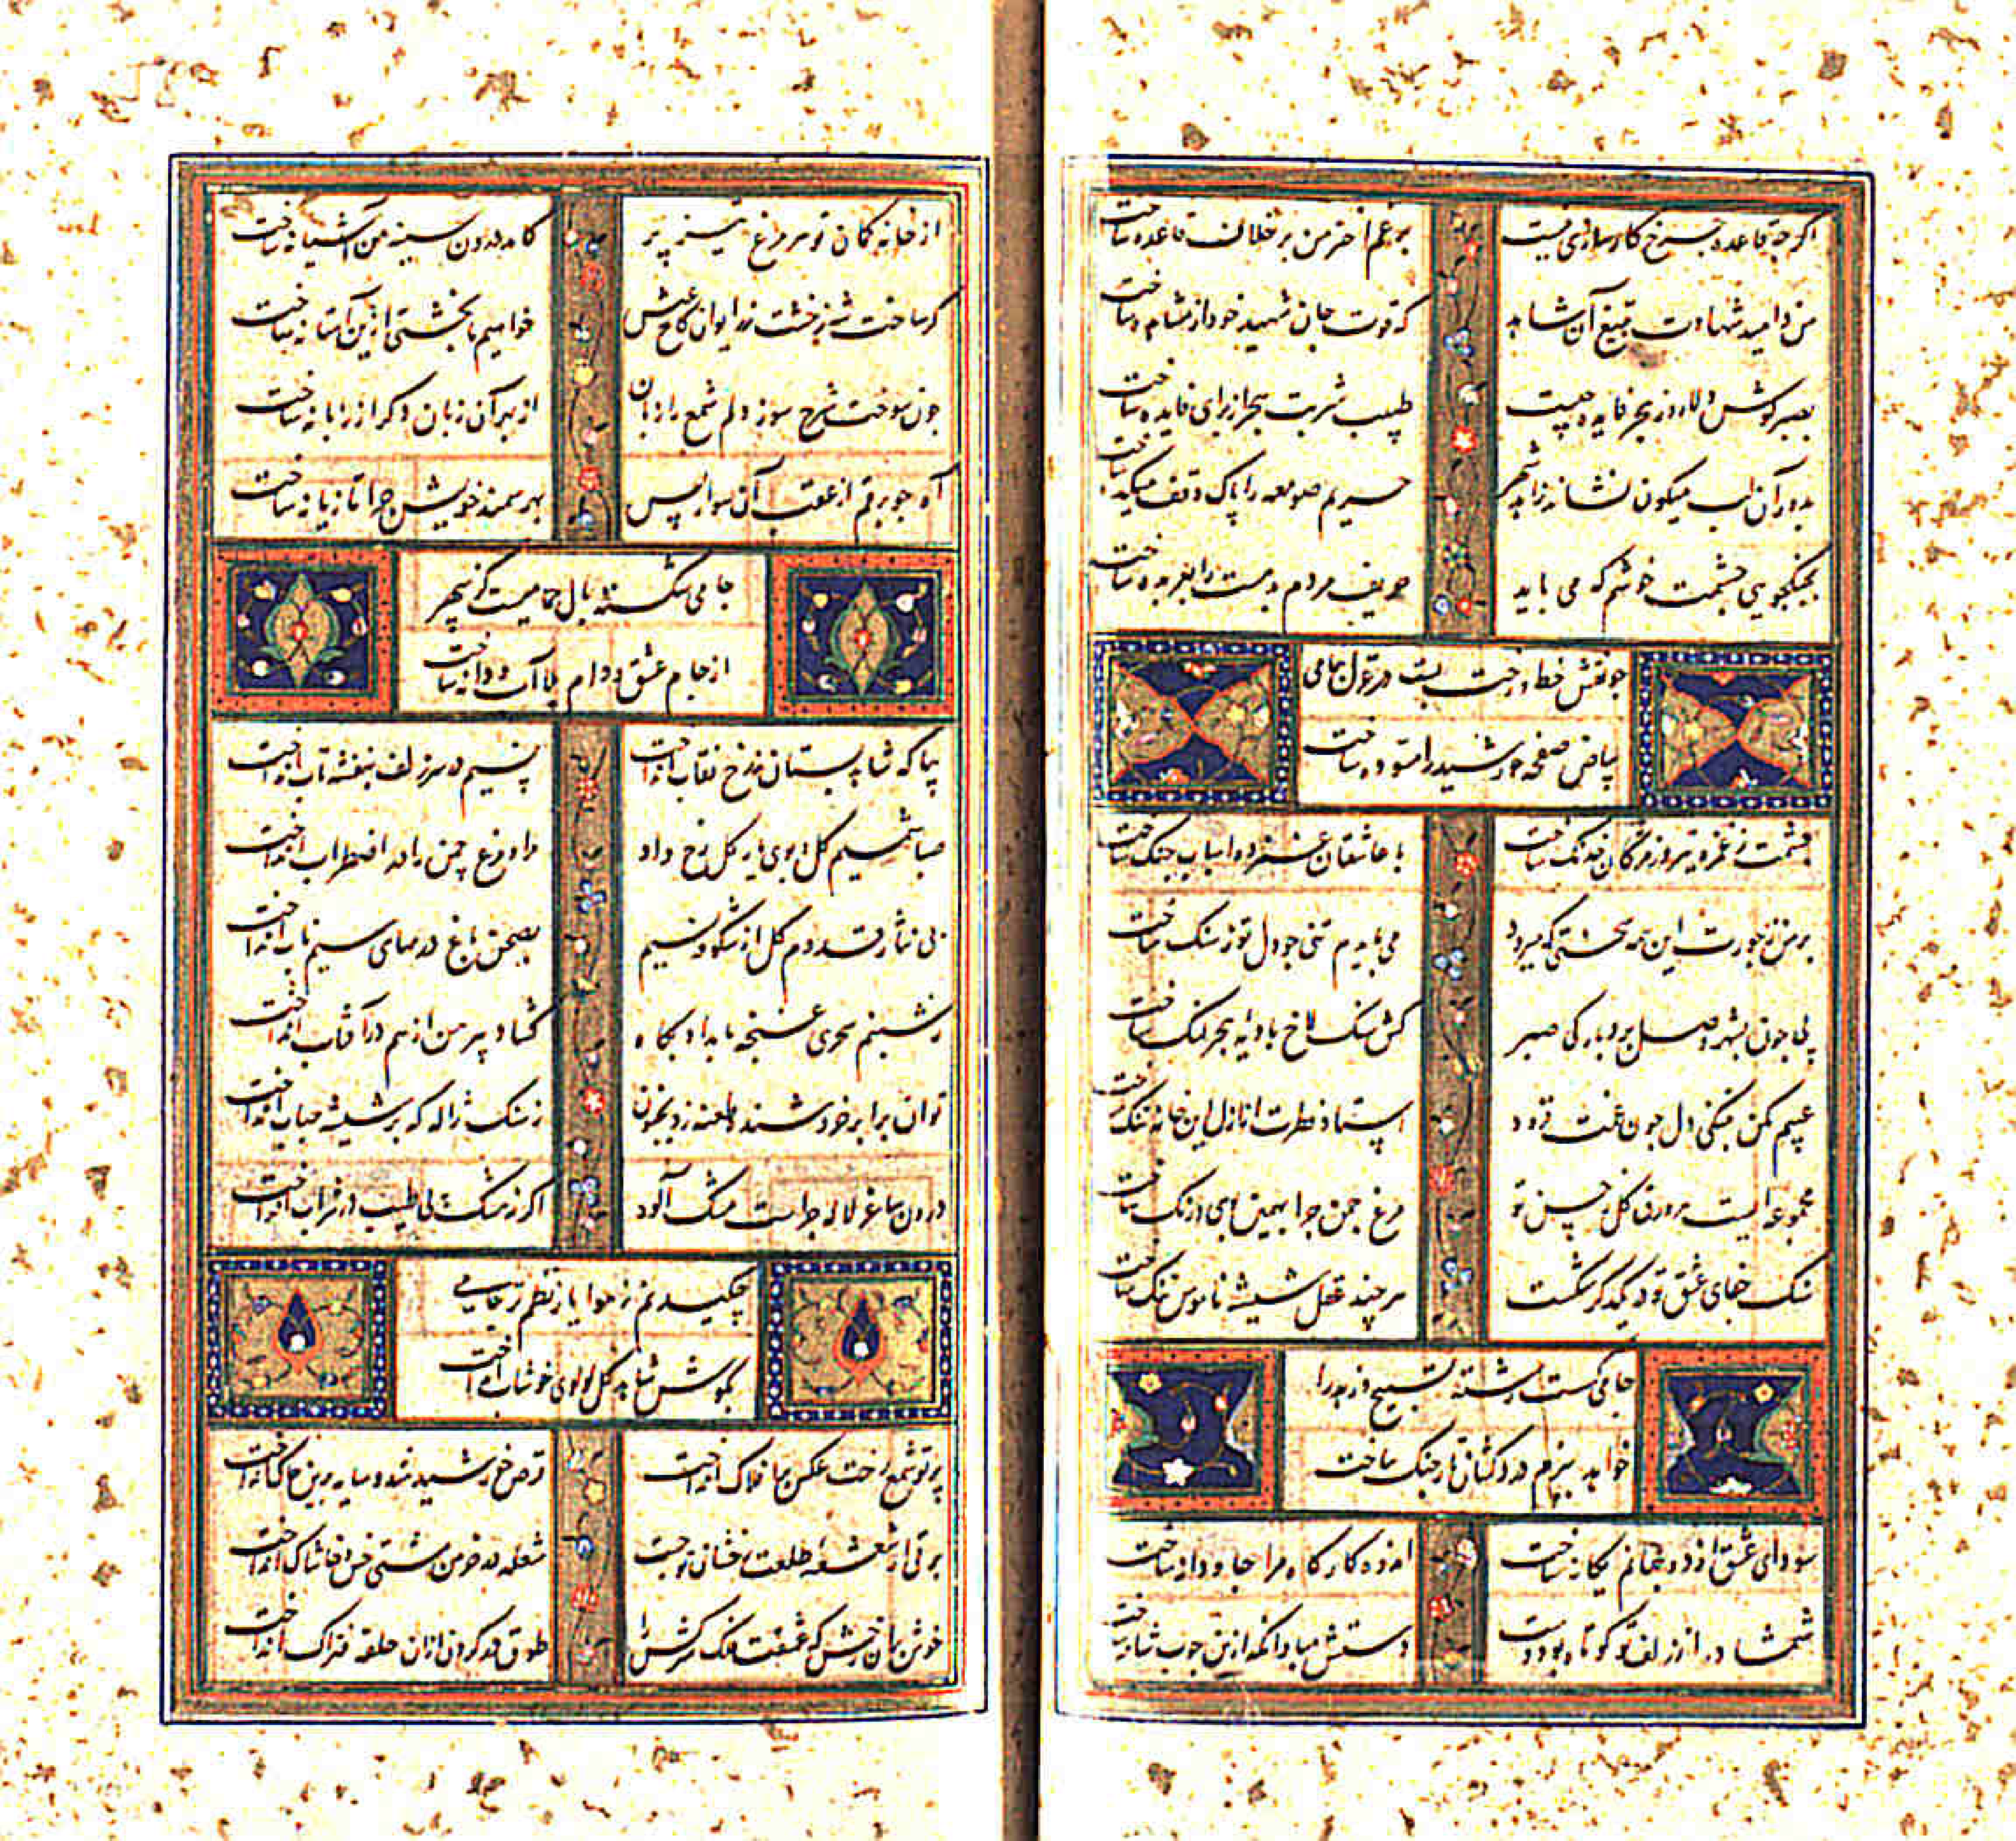 اگر چه قاعده چرخ کارسازی نیست
برغم اختر من بر خلاف قاعده ساخت
من و امید شهادت بتیغ آن شاهد
که قوت جان شهید خود از مشاهده ساخت
بصبر کوش دلا روز هجر فایده چیست
طبیب شربت هجر از برای فایده ساخت
بدور آن لب میکون نشانه زاهد شهر
حریم صومعه را پاک وقف میکده ساخت
بجنکجویی چشمت خوشم که می باید
حریف مردم بدمست را بعربده ساخت
چو نقش خط و رخت بست در غزل جامی
بیاض صفحه خورشید را مسوده ساخت
چشمت ز غمزه تیر و ز مژکان خدنک ساخت
با عاشقان غمزده اسباب جنک ساخت
بر من ز جورت این همه سختی که میرود
می بایدم تنی چو دل تو ز سنک ساخت
پی چون بشهر وصل برد بارکی صبر
کش سنک لاخ بادیه هجر لنک ساخت
عیبم مکن بتنکی دل چون غمت فزود
استاد فطرت از ازل این خانه تنک ساخت
مجموعه ایست هر ورق کل ز حسن تو
مرغ چمن چرا بهمین بوی و رنک ساخت
سنک جفای عشق تو در یکدکر شکست
هر چند عقل شیشه ناموس ننک ساخت
جامی کسست رشته تسبیح زهد را
خواهد ببزم دردکشان تار چنک ساخت
سودای عشق از دو جهانم یکانه ساخت
اندوه کار کاه مرا جاودانه ساخت
شمشاد را ز زلف تو کوتاه بود دست
دستش مباد آنکه ازین چوب شانه ساخت
از خانه کمان تو هر مرغ تیز پر
کامد درون سینه من آشیانه ساخت
کر ساخت شه ز خشت زر ایوان کاخ عیش
خواهیم ما بخشتی ازین آستانه ساخت
چون سوخت شرح سوز دلم شمع را زبان
از بهر آن زبان دکر از زبانه ساخت
آه چو برقم از عقب آن سوار پس
بهر سمند خویش چرا تازیانه ساخت
جامی شکسته بال حمامیست کز سپهر
از جام عشق و دام بلا آب و دانه ساخت
بیا که شاهد بستان ز رخ نقاب انداخت
نسیم در سر زلف بنفشه تاب انداخت
صبا شمیم کل و بوی یار کل رخ داد
مرا و مرغ چمن را در اضطراب انداخت
پی نثار قدوم کل از شکوفه نسیم
بصحن باغ درمهای سیم ناب انداخت
ز شبنم سحری غنچه بامداد پکاه
کشاد پیرهن از هم در آفتاب انداخت
توان برابر خورشید طعنه زد بجنون
ز سنک ژاله که بر شیشه حباب انداخت
درون ساغر لاله چراست مشک آلود
اکر نه مشک پی طیب در شراب انداخت
چکید نم ز هوا یا ز نظم تر جامی
بکوش شاهد کل لولوی خوشاب انداخت
پرتو شمع رخت عکس بر افلاک انداخت
قرص خورشید شد و سایه برین خاک انداخت
برقی از شعشعه طلعت رخشان تو جست
شعله در خرمن مشتی خس و خاشاک انداخت
خوش بران رخش که عشقت فلک سرکش را
طوق در کردن ازان حلقه فتراک انداخت